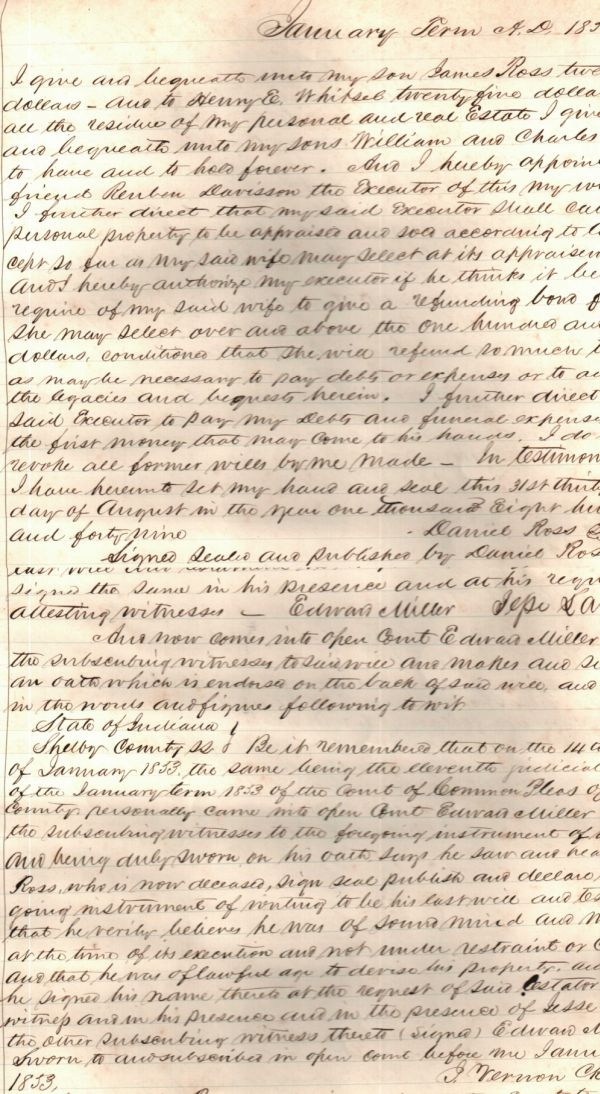 January Term A.D. 185
I give and bequeath unto my son James Ross twe
dollars – and to Henry E. Whitsel twenty five dolla
all the residue of my personal and real Estate I give
and bequeath unto my sons William and Charles
to have and to hold forever. And I hereby appoin
friend Reuben Davisson the Executor of this my w
I further direct that my said Executor shall ca
personal property to be appraised and sold according to l
cept so far as my said wife may select at its appraisem
And I hereby authorize my executor if he thinks it be
require of my said wife to give a refunding bond f
she may select over and above the one hundred an
dollars, conditioned that she will refund so much t
as may be necessary to pay debts or expenses or to
the legacies and bequests herein. I further direct
said Executor to pay my Debts and funeral expens
the first money that may come to his hands. I do
revoke all former wills by me made – In testimon
I have hereunto set my hand and seal this 31st thirt
day of August in the year one thousand Eight hu
and forty nine - Daniel Ross
Signed sealed and published by Daniel Ros
last will and
signed the same in his presence and at his requ
attesting witnesses – Edward Miller Jesse La
And now comes into open Court Edward Miller
the subscribing witnesses to said will and makes and s
an oath which is endorsed on the back of said will, and
in the words and figures following to wit
State of Indiana
Shelby County ss Be it remembered that on the 14
of January 1853, the same being the eleventh judicial
of the January term 1853 of the Court of Common Pleas of
County, personally came into open Court Edward Miller
the subscribing witnesses to the foregoing instrument of
and being duly sworn, on his oath says he saw and hea
Ross, who is now deceased, sign seal publish and declare
going instrument of writing to be his last will and tes
that he verily believes he was of sound mind and m
at the time of its execution and not under restraint or c
and that he was of lawful age to devise his property, an
he signed his name thereto at the request of said testator
witness and in his presence and in the presence of Jesse
the other subscribing witness thereto (signed) Edward M
Sworn to and subscribed in open court before me Janu
1853, J. Vernon Ck